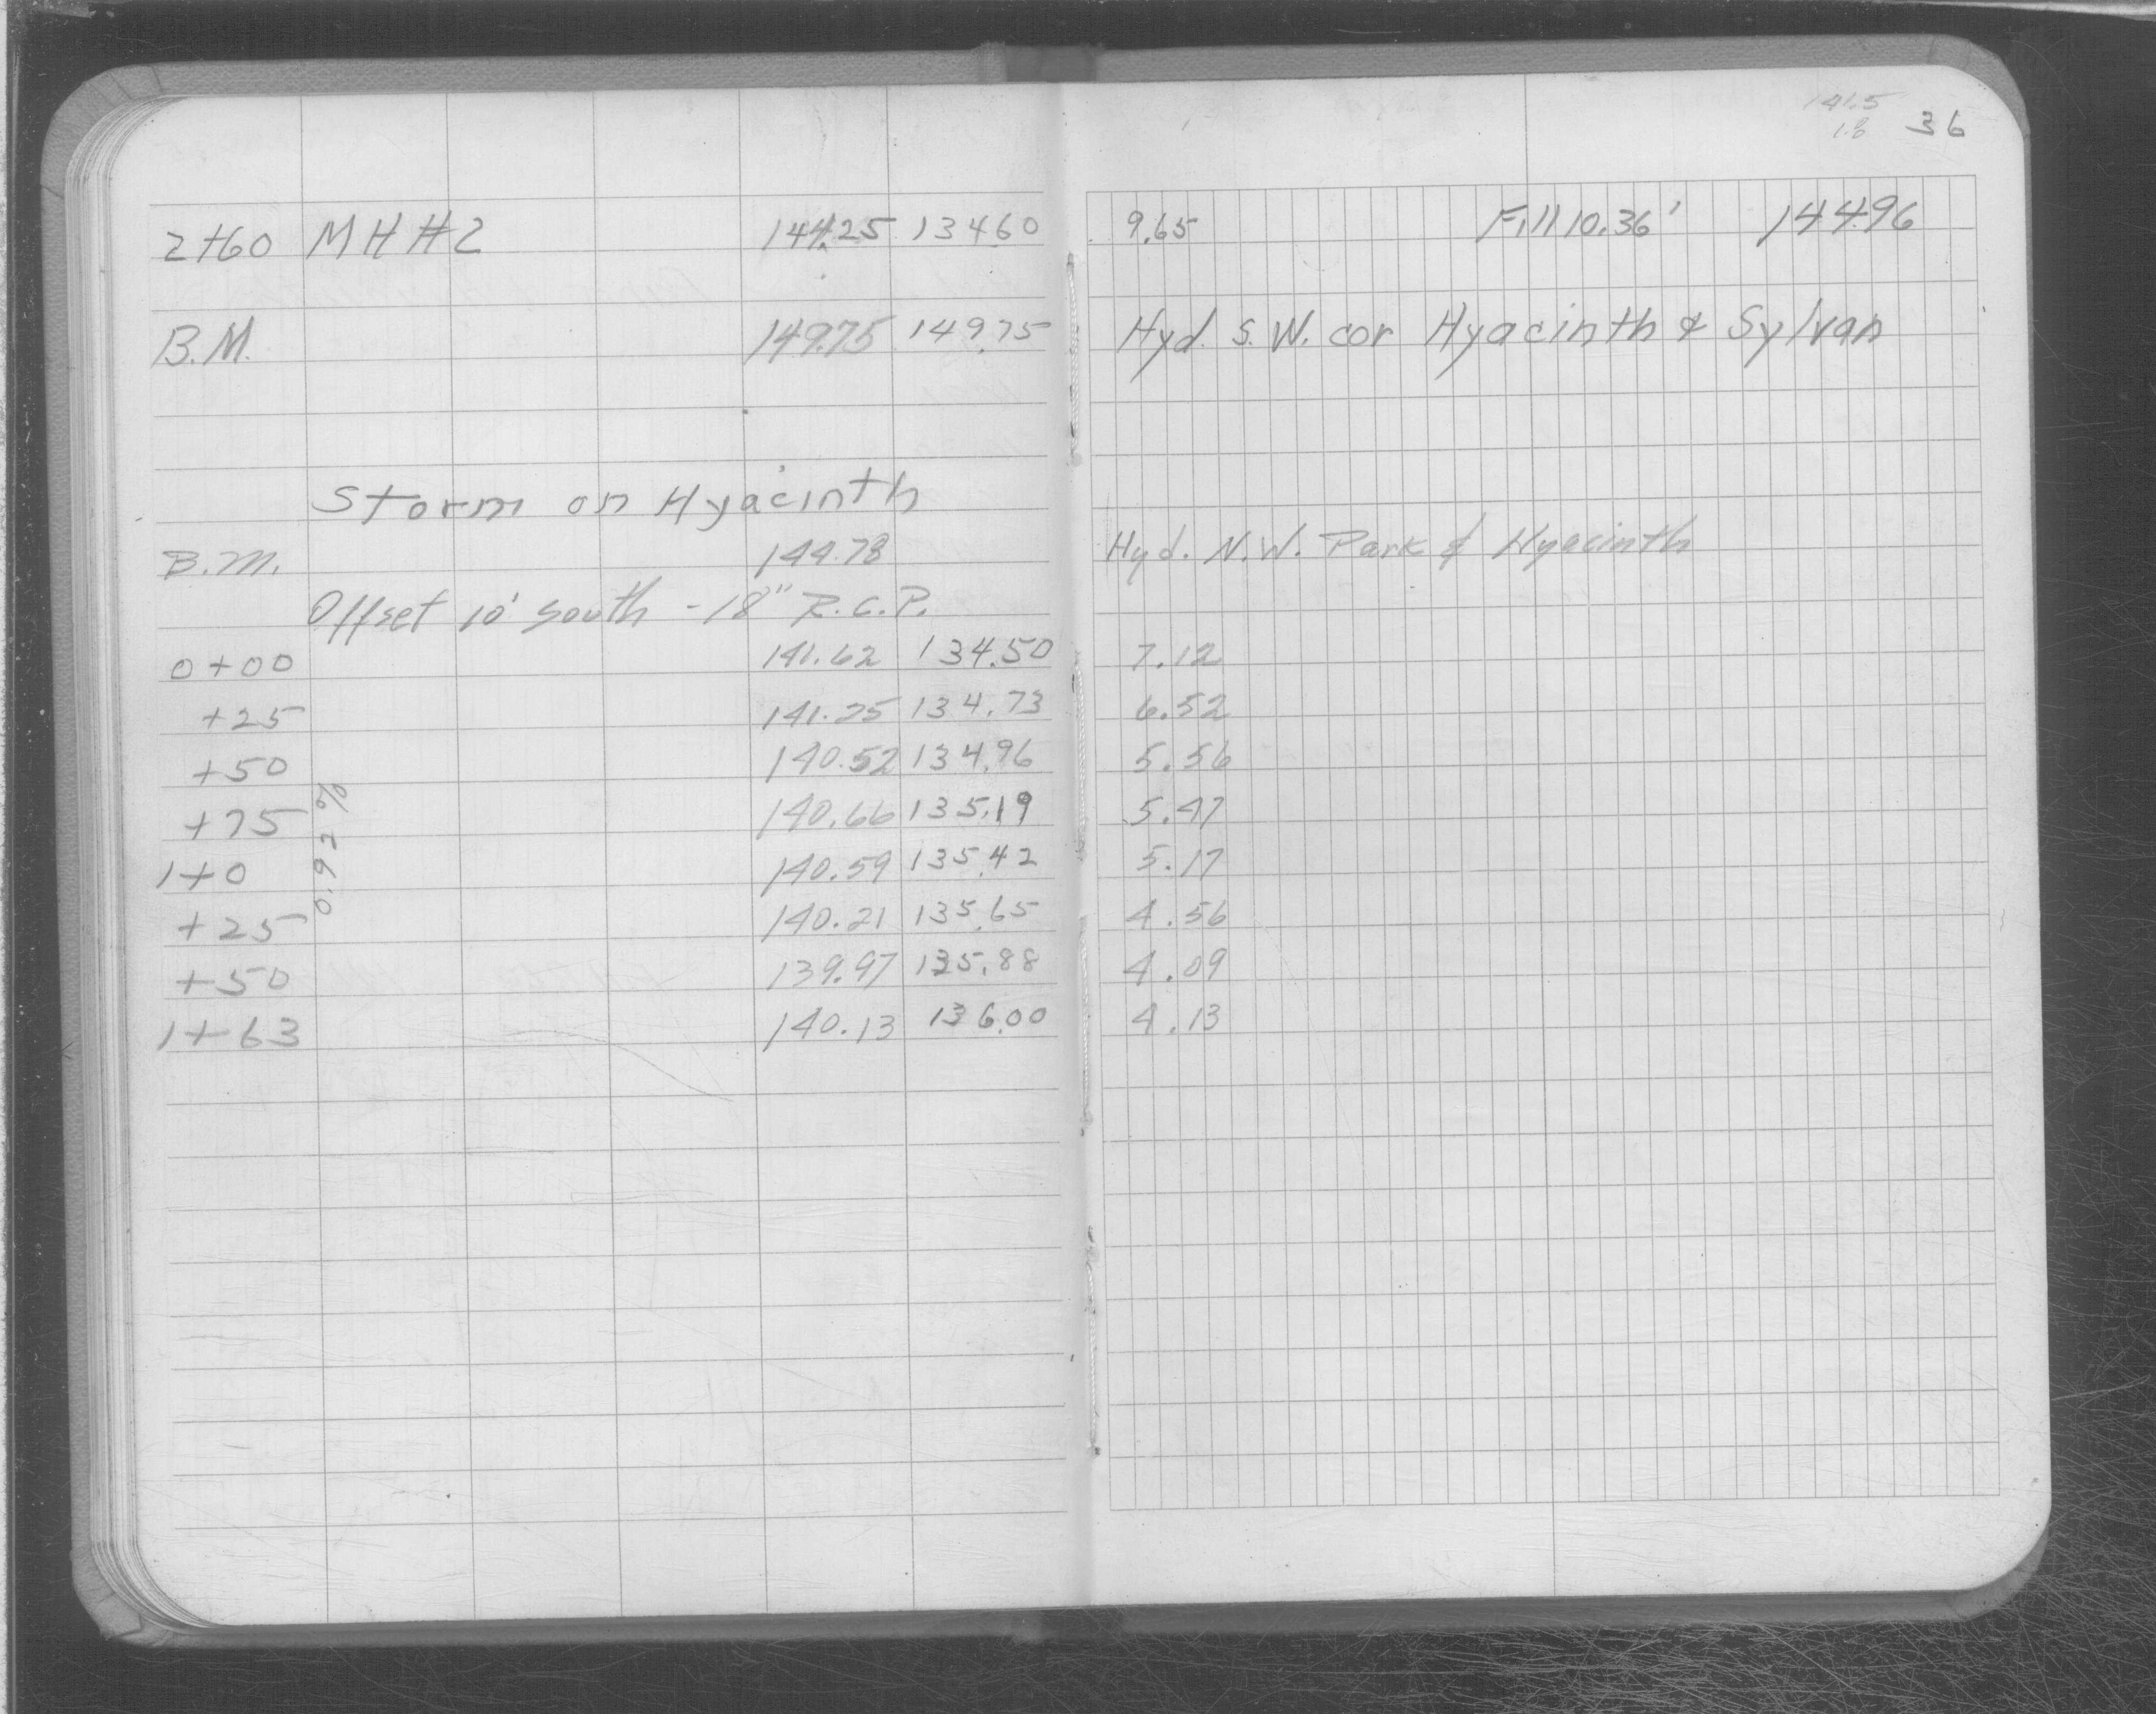 141.5
1.8 36
2+60 MH#2 144.25 134.60 9.65 Fill 10.36' 144.96
B.M. 149.75 149.75 Hyd. S.W. cor Hyacinth & Sylvan
Storm on Hyacinth
B.M. 144.78 Hyd. N.W. Park & Hyacinth
Offset 10' south - 18" R.C.P.
0+00 141.62 134.50 7.12
+25 141.25 134.73 6.52
+50 140.52 134.96 5.56
+75 140.66 135.19 5.47
1+0 140.59 135.42 5.17
+25 140.21 135.65 4.56
+50 139.97 135.88 4.09
1+63 140.13 136.00 4.13
0.92%